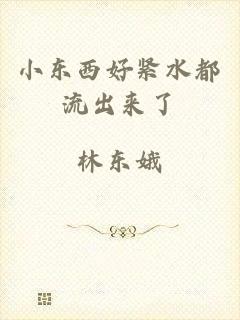 小东西好紧水都
流出来了
林东娥